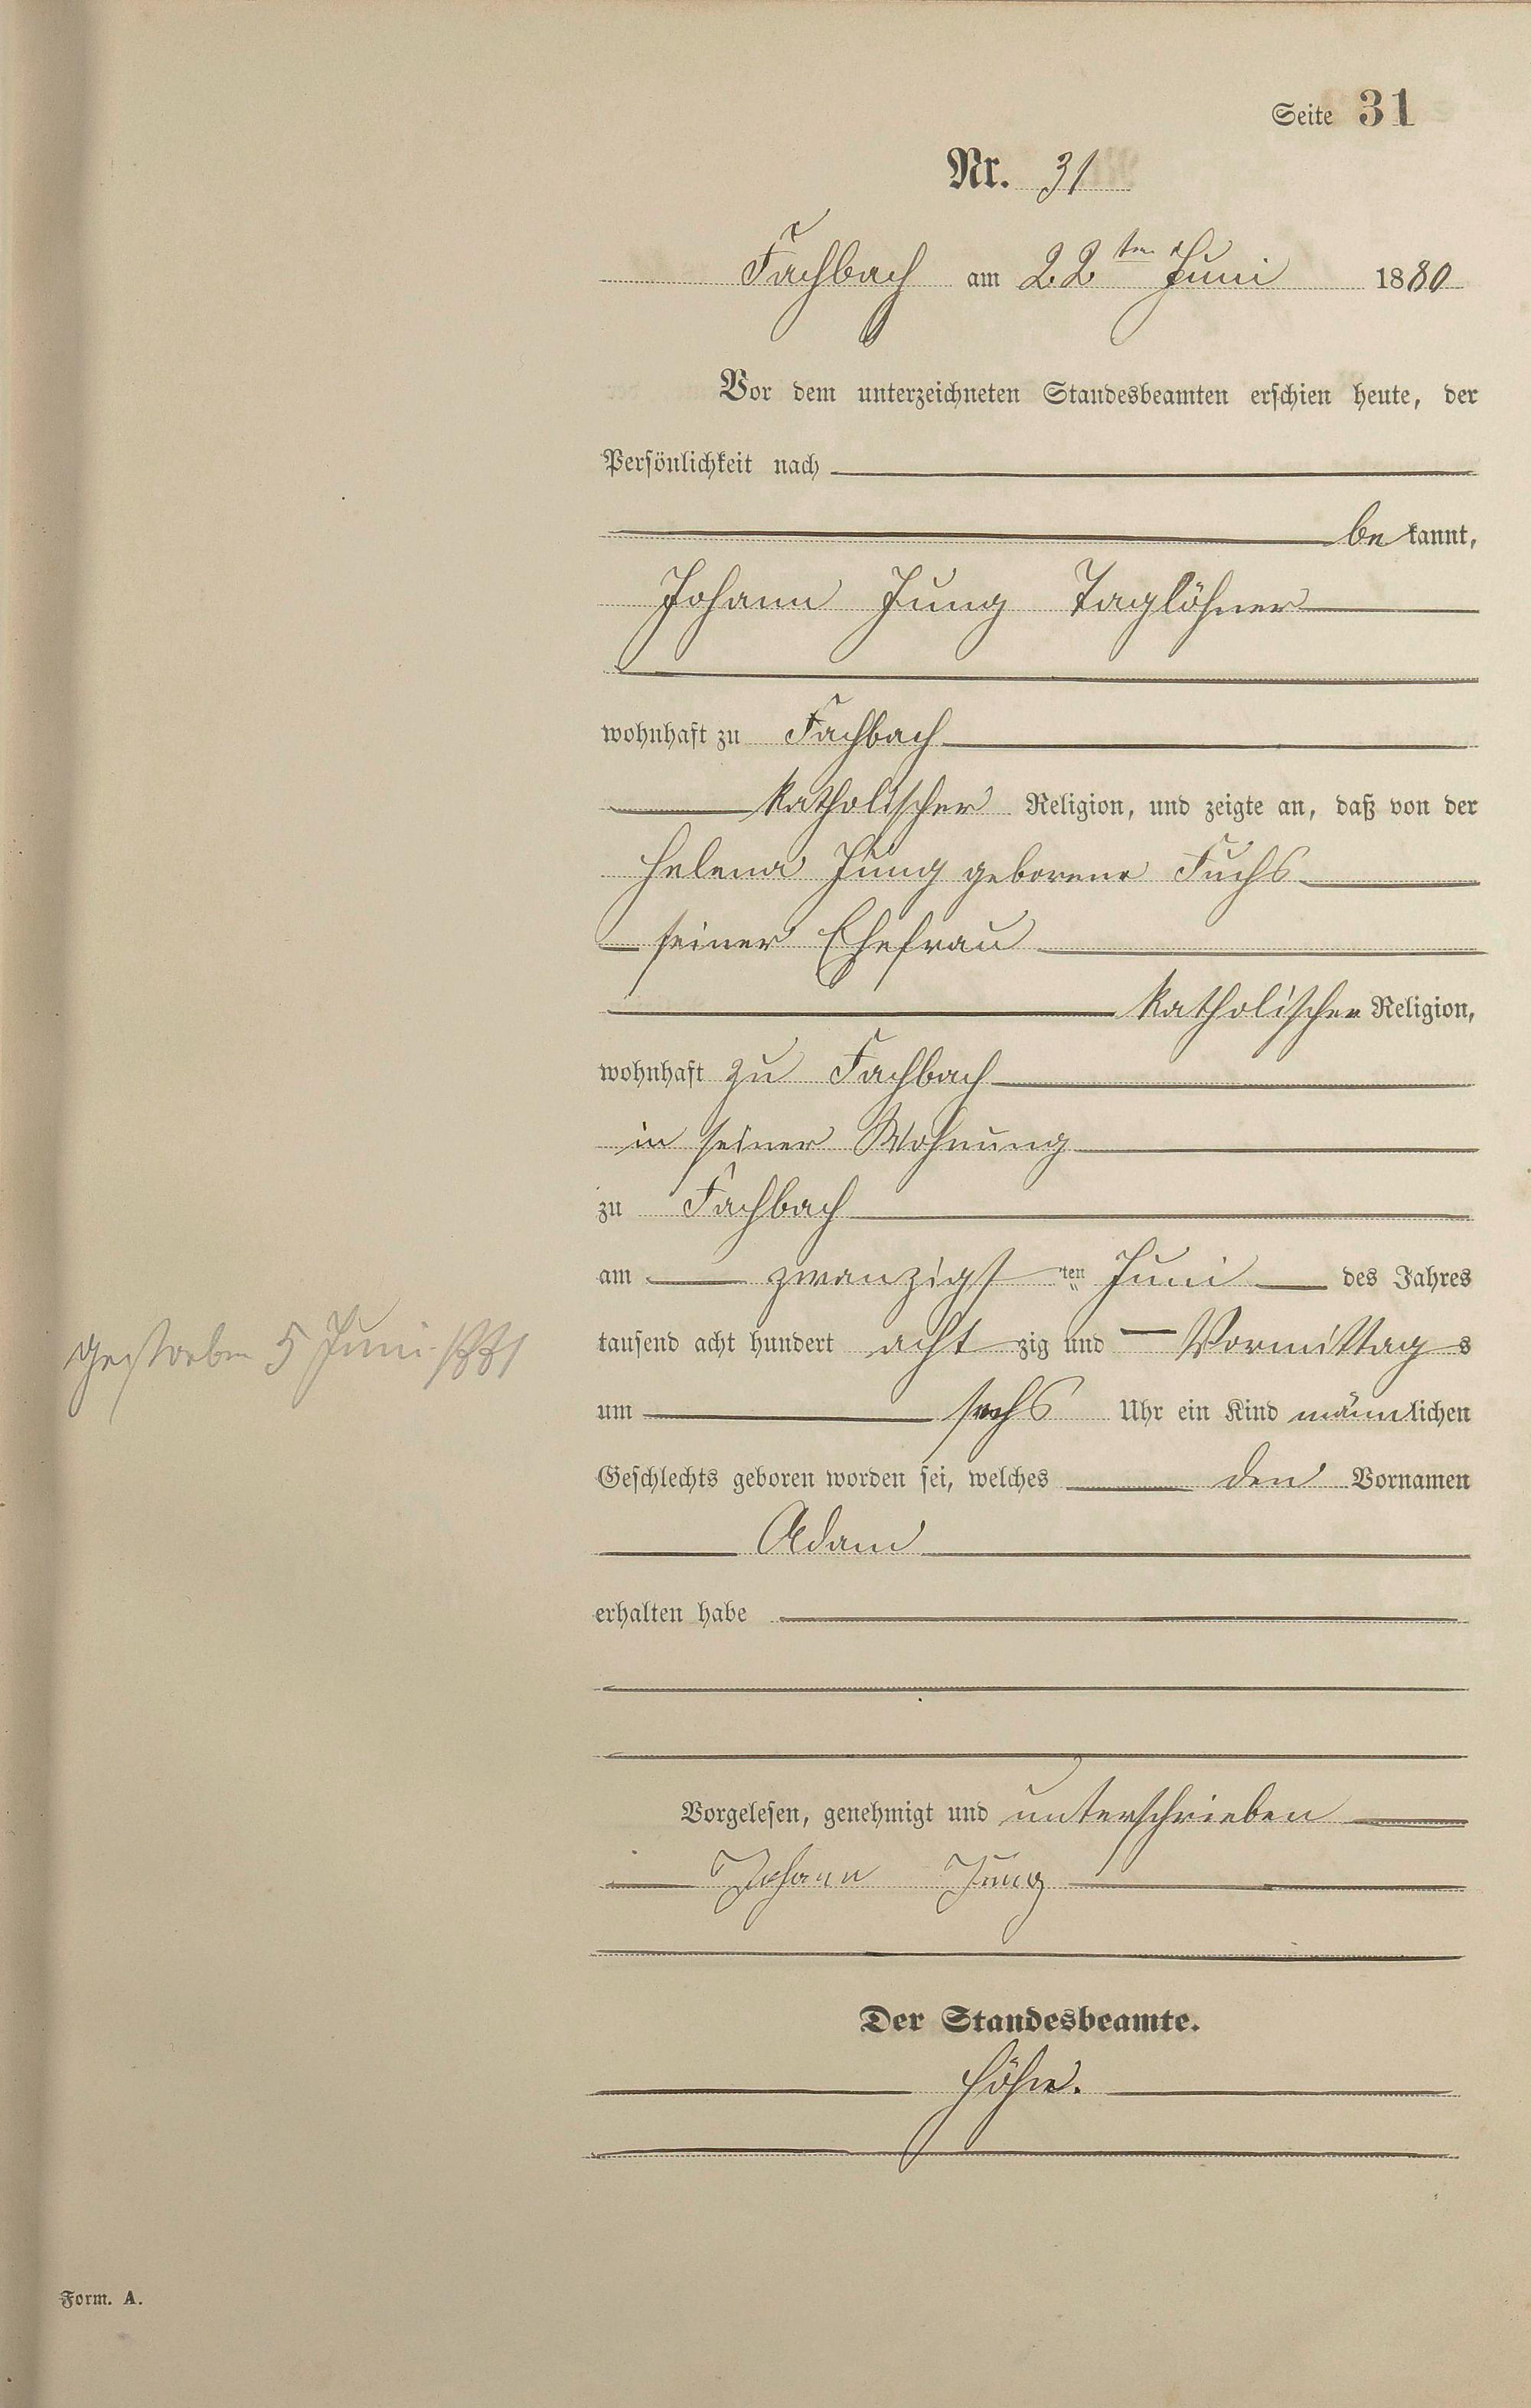 Seite 31
Nr. 31
Fachbach am 22ten Juni 1880
Vor dem unterzeichneten Standesbeamten erschien heute, der
Persönlichkeit nach
bekannt,
Johann Jung Taglöhner
wohnhaft zu Fachbach
katholischer Religion, und zeigte an, daß von der
Helena Jung geborene Fuchs
seiner Ehefrau
katholischer Religion,
wohnhaft zu Fachbach
in seiner Wohnung
zu Fachbach
am zwanzigsten Juni des Jahres
tausend acht hundert achtzig und Vormittags
um sechs Uhr ein Kind männlichen
Geschlechts geboren worden sei, welches den Vornamen
Adam
erhalten habe
Vorgelesen, genehmigt und unterschrieben
Johann Jung
Der Standesbeamte.
Höhn.
gestorben 5 Juni
Form. A.